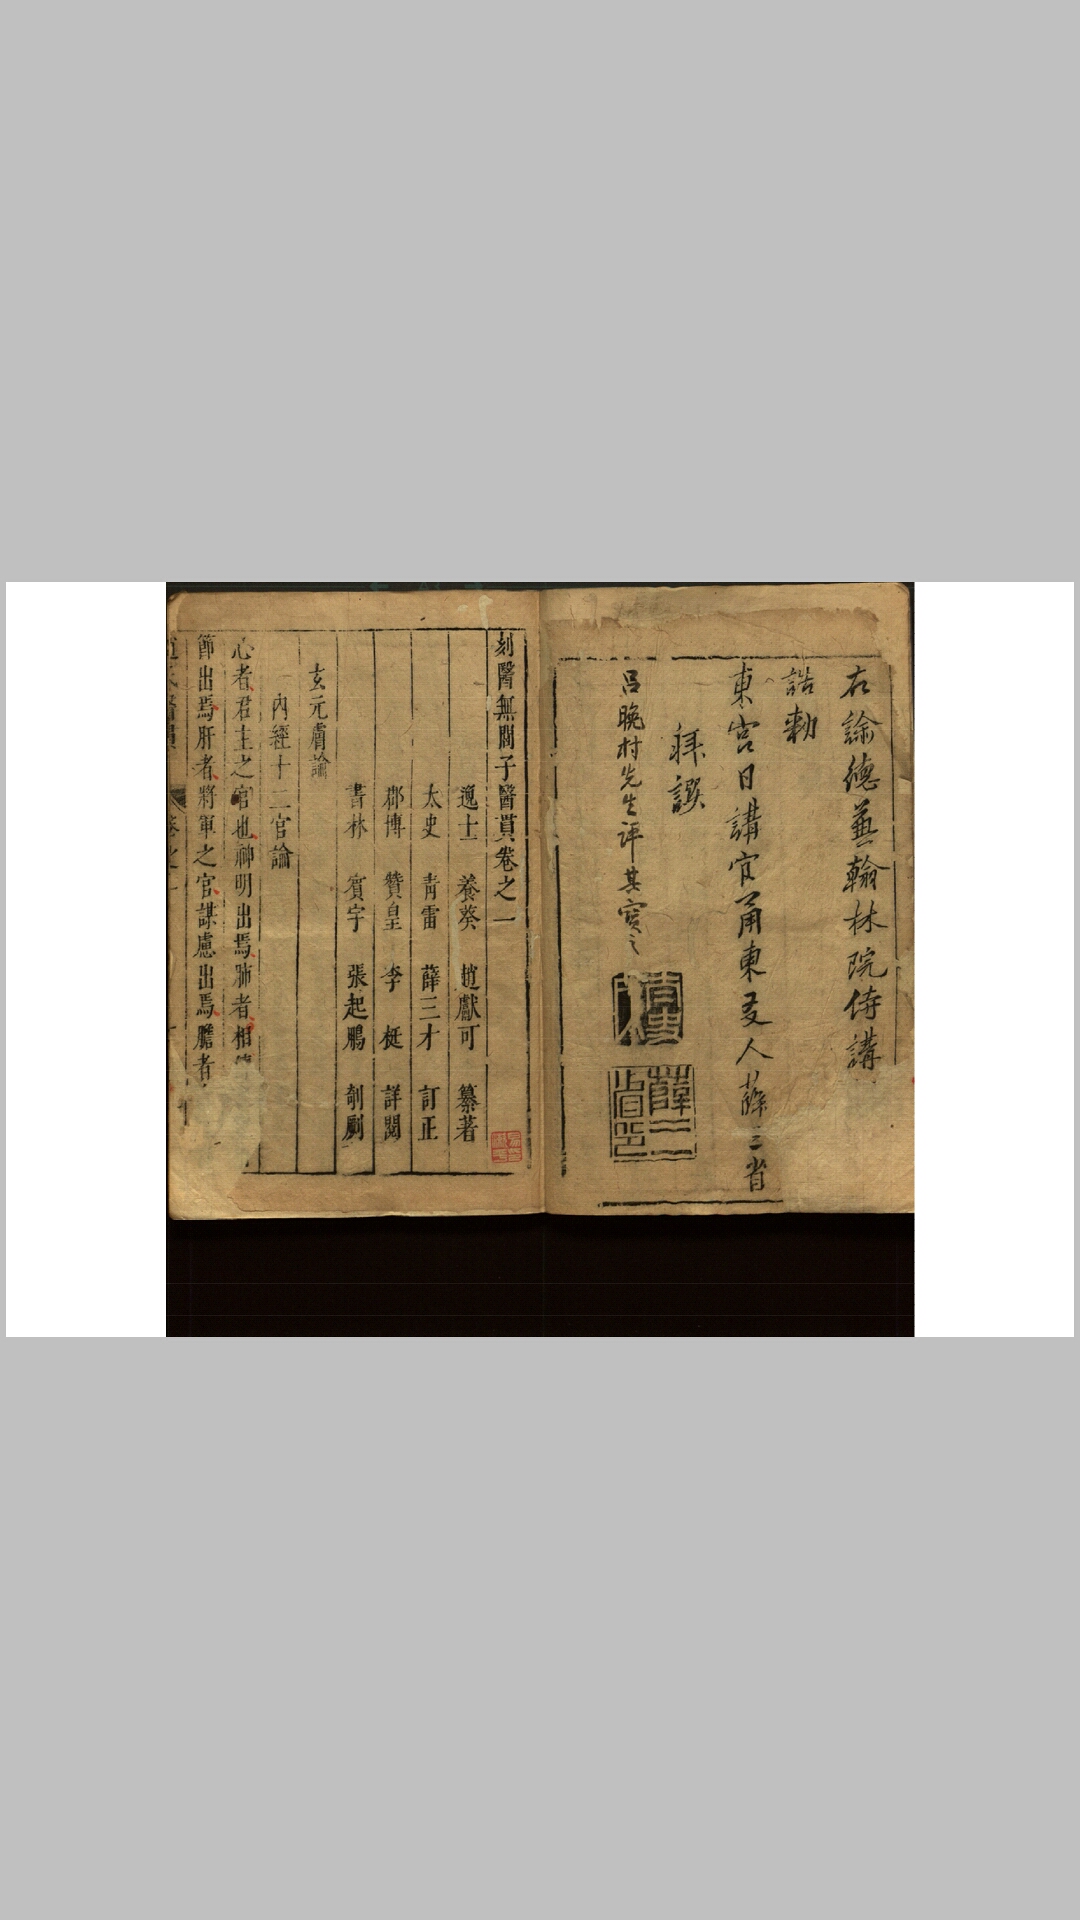 右諭德兼翰林院侍講
誥勅
東宮日講官甬東友人薛三省
拜譔
呂晚村先生評其實之
薛三省印
刻醫無閭子醫貫卷之一
逸士 養葵 趙獻可 纂著
太史 青雷 薛三才 訂正
郡博 贊皇 李 梃 詳閱
書林 賓宇 張起鵬 刳劂
玄元膚論
內經十二官論
心者君主之官也神明出焉肺者相
節出焉肝者將軍之官謀慮出焉膽者